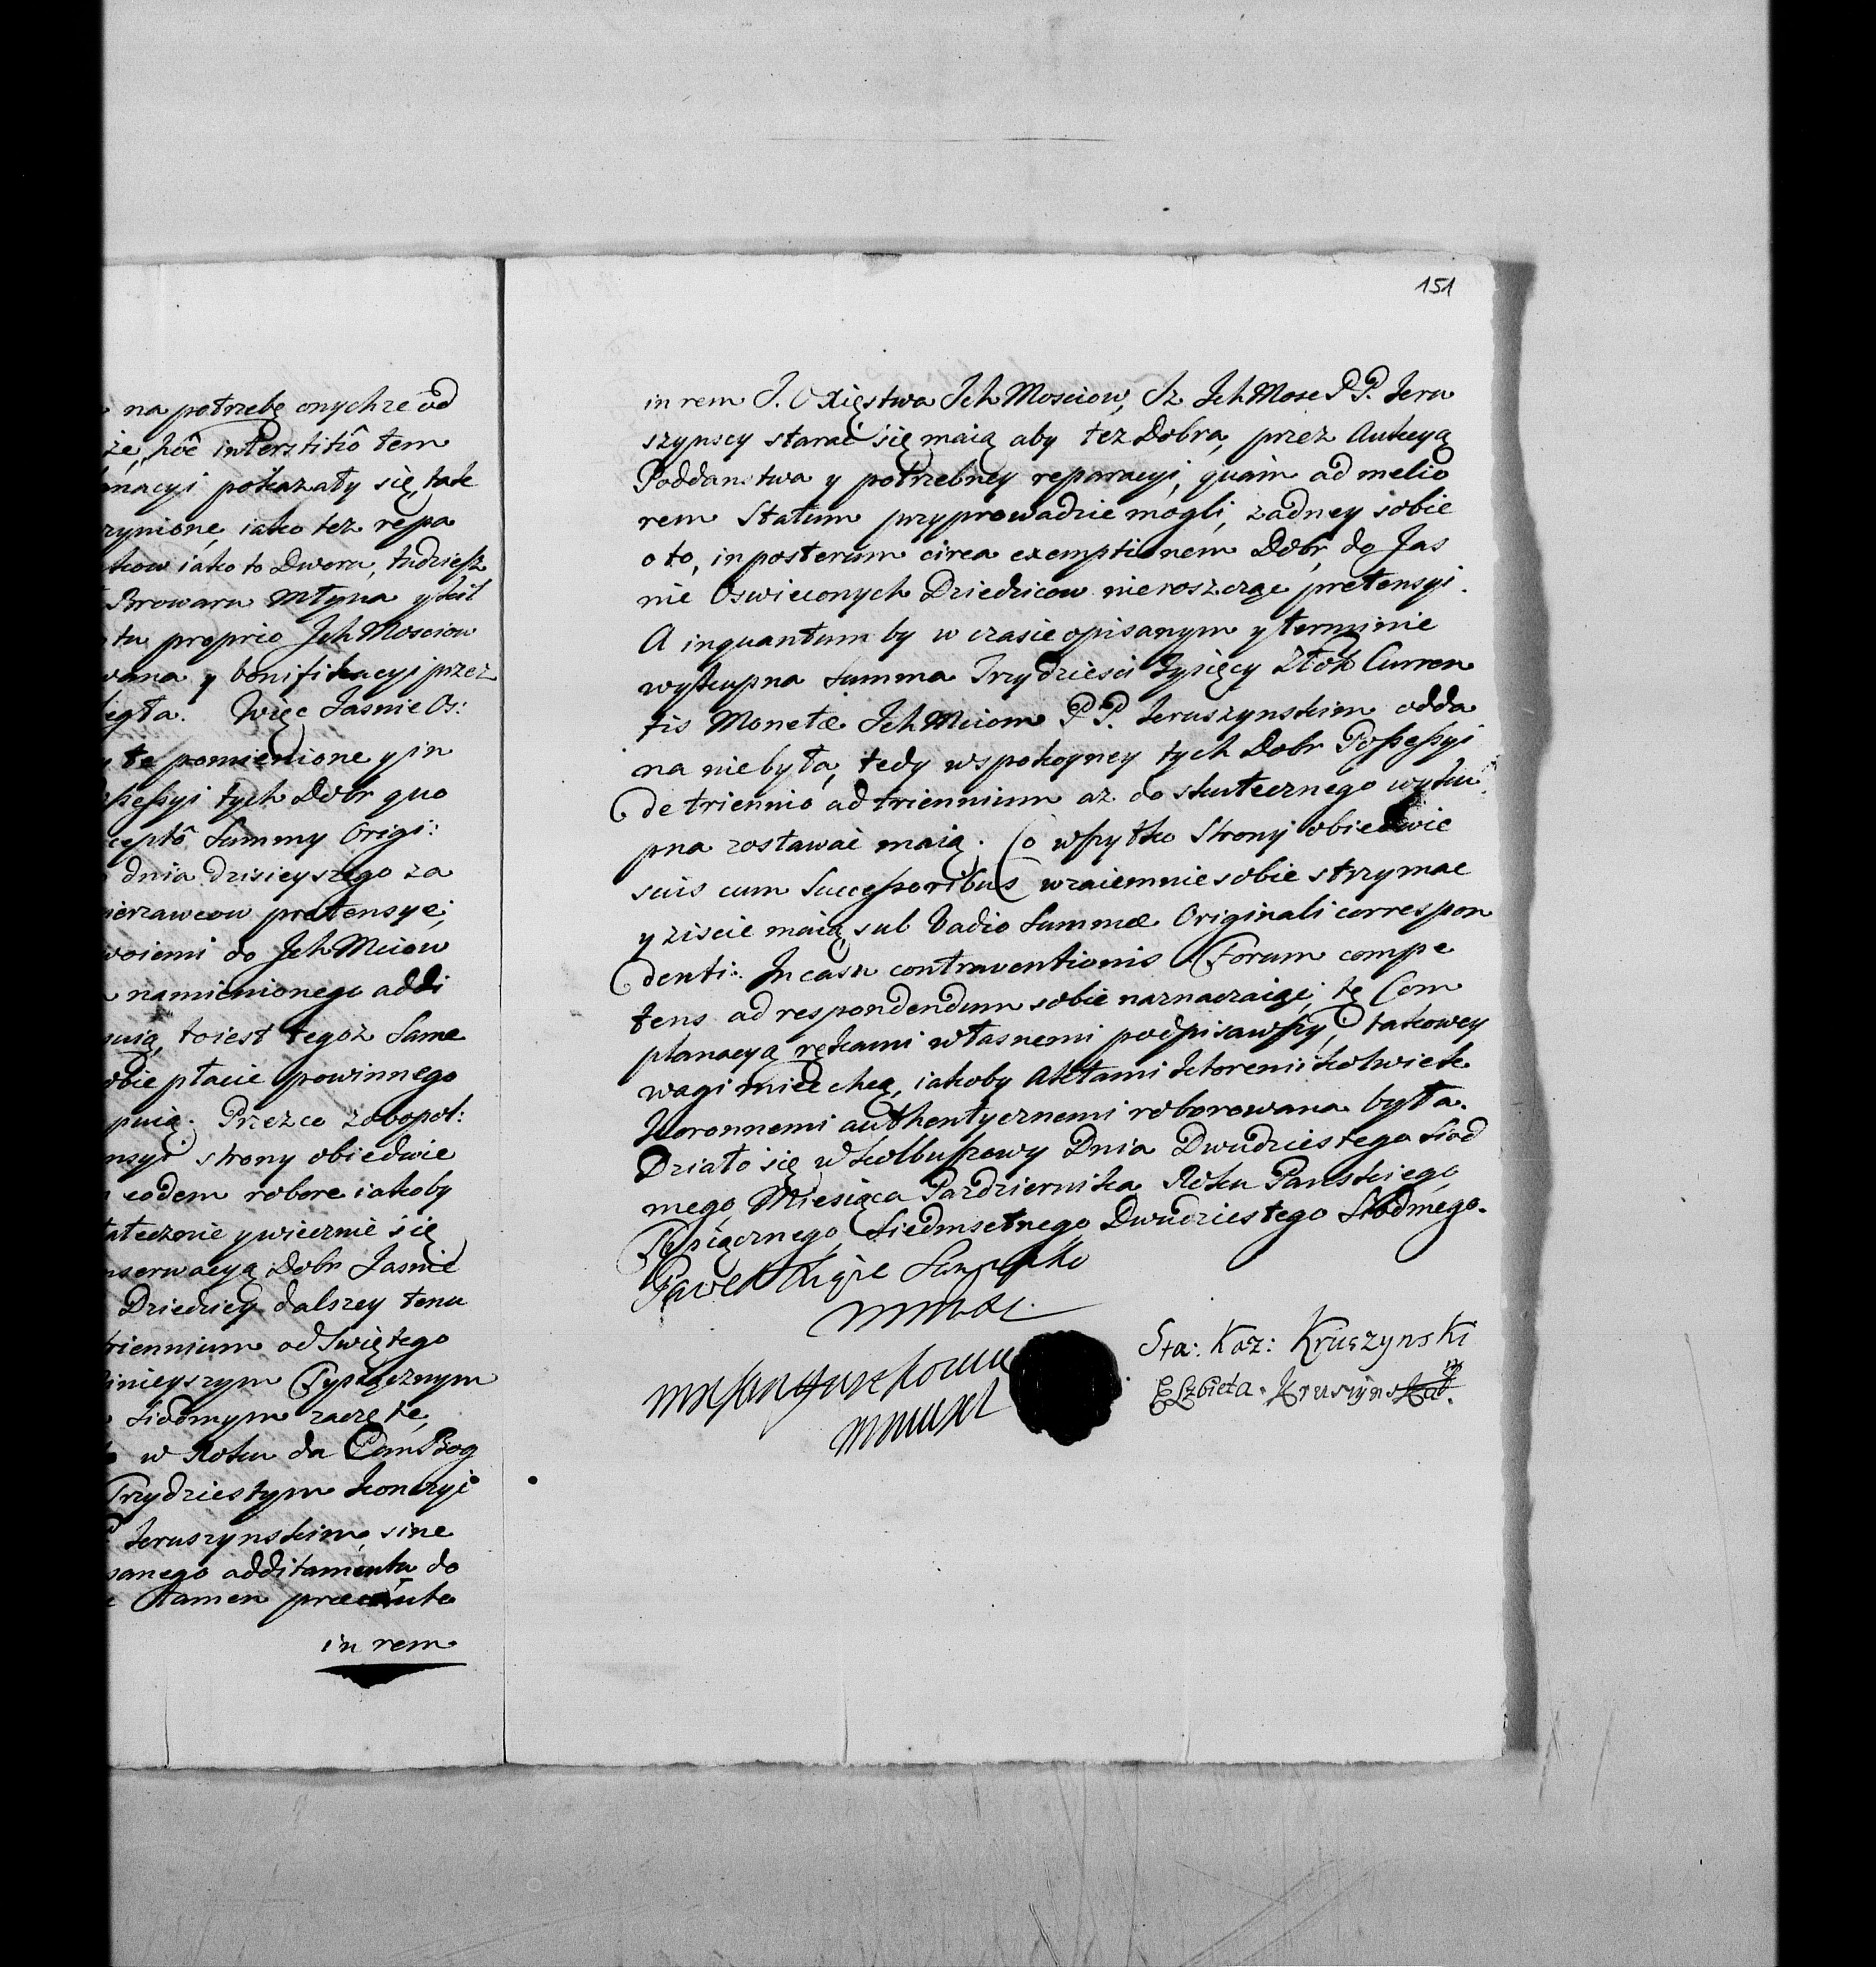 na potrzebę onychze od
że, hôc interstitiô tem
macyi pokazały się, tak
rynione, iako tez repa
kow iako to Dworu, tudziesz
Browaru Młyna y kil
tu proprio Ich Mosciow
wana y bonifikacyi przez
legła. Więc Jasnie Os:
te pomienione y in
ssessyi tych Dobr quo
ceptô Summy Origi:
dnia dzisieyszego za
ierzawcow pretensye,
woiemi do Ich Mciow
namienionego addi
puią, to iest tegoz Same
obie płacic powinnego
puią. Przez co zobopol:
nsyi strony obiedwie
eodem robore iakoby
tatecznie y wiecznie się
nserwacyą Dobr Jasnie
Dziedzicy dalszey tenu
triennium od Swiętego
inieyszym Tysiącznym
Siodmym zaczęte,
w Roku da Pan Bog
Trzydziestym konczyc
Kruszynskim, sine
sanego additamentu do
tamen praecauto
in rem
151
in rem J. O Xięstwa Ich Mosciow, Iz Ich Mosc P P. Kru
szynscy starac się maią aby tez Dobra, przez Aukcyą
Poddanstwa y potrzebney reparacyi, quàm ad melio
rem Statum przyprowadzic mogli, zadney sobie
o to, in posterum circa exemptionem Dobr, do Jas
nie Oswieconych Dziedzicow nieroszcząc pretensyi.
A inquantum by w czasie opisanym y terminie
wykupna Summa Trzydziesci Tysięcy Złott Curren
tis Monetæ Ich Mciom P P. Kruszynskim odda
na niebyła, tedy w spokoyney tych Dobr Possessyi
de triennio ad triennium az do skutecznego wyku
pna zostawac maią. Co wszytko Strony obiedwie
suis cum Successoribus wzaiemnie sobie strzymac
y ziscic maią sub Vadio Summæ Originali correspon
denti. In casu contraventionis Forum compe
tens ad respondendum sobie naznaczaiąc, tę Com
planacyą rękami własnemi podpisawszy, takowey
wagi miec chcą, iakoby Aktami ktoremikolwiek
Koronnemi authentycznemi roborowana była.
Działo się w Kolbuszowy Dnia Dwudziestego Siod
mego Miesiąca Pazdziernika Roku Panskiego
Tysiącznego Siedmsetnego Dwudziestego Siodmego.
Paweł Xiąże Sanguszko
Sta: Kaz: Kruszynski
Elzbieta Kruszynska